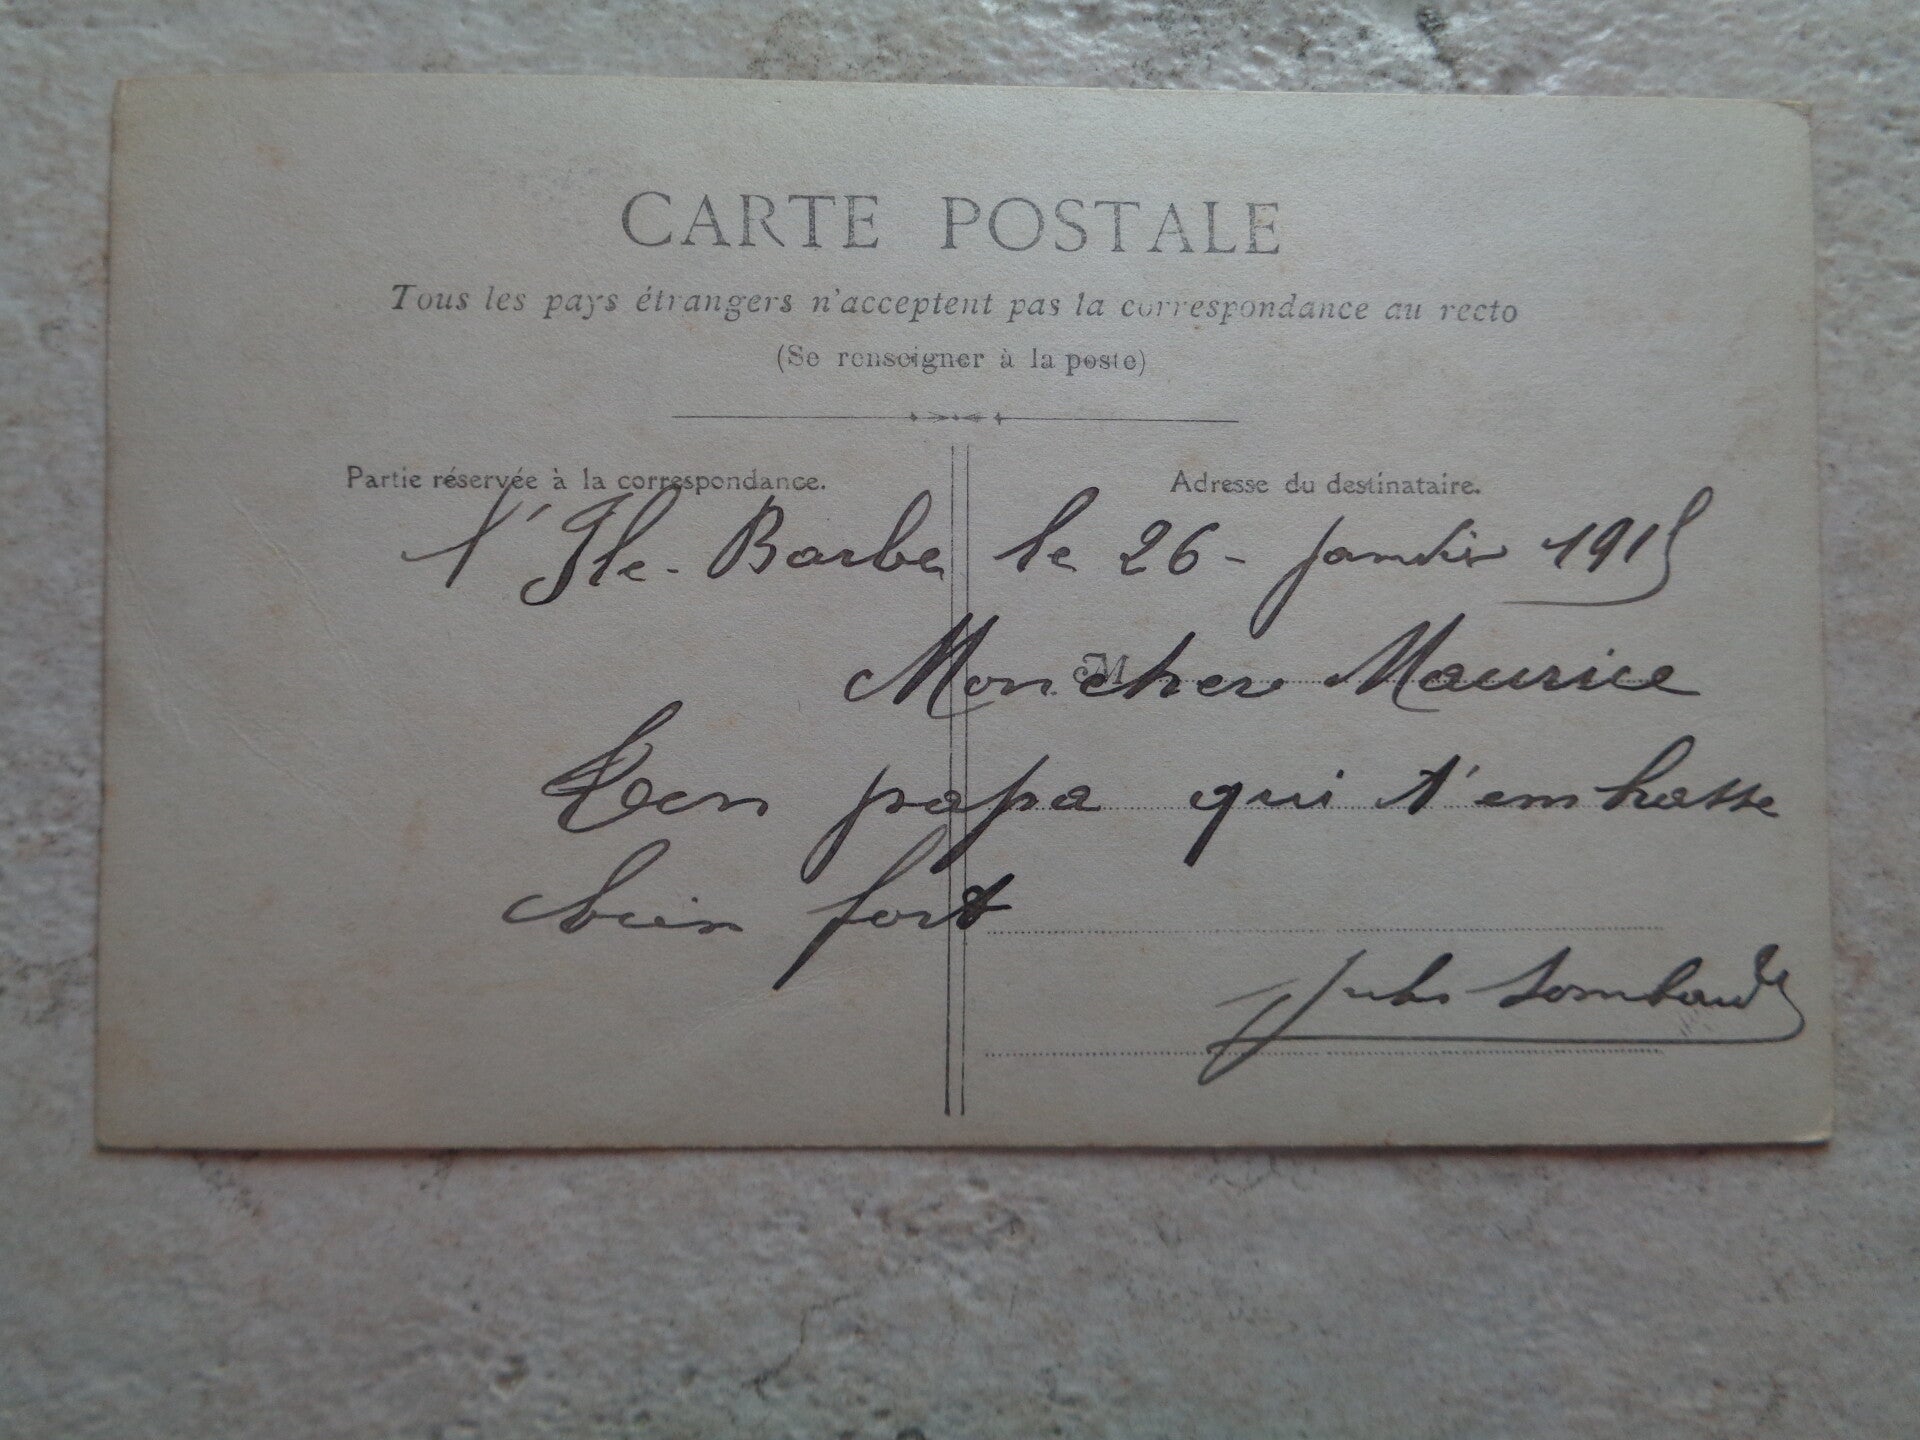 CARTE POSTALE
Tous les pays étrangers n'acceptent pas la correspondance au recto
(Se renseigner à la poste)
Partie réservée à la correspondance.
Adresse du destinataire.
l'Ile-Barbe le 26 - janvier 1915
M
Mon cher Maurice
Ton papa qui t'embrasse
bien fort
Jules